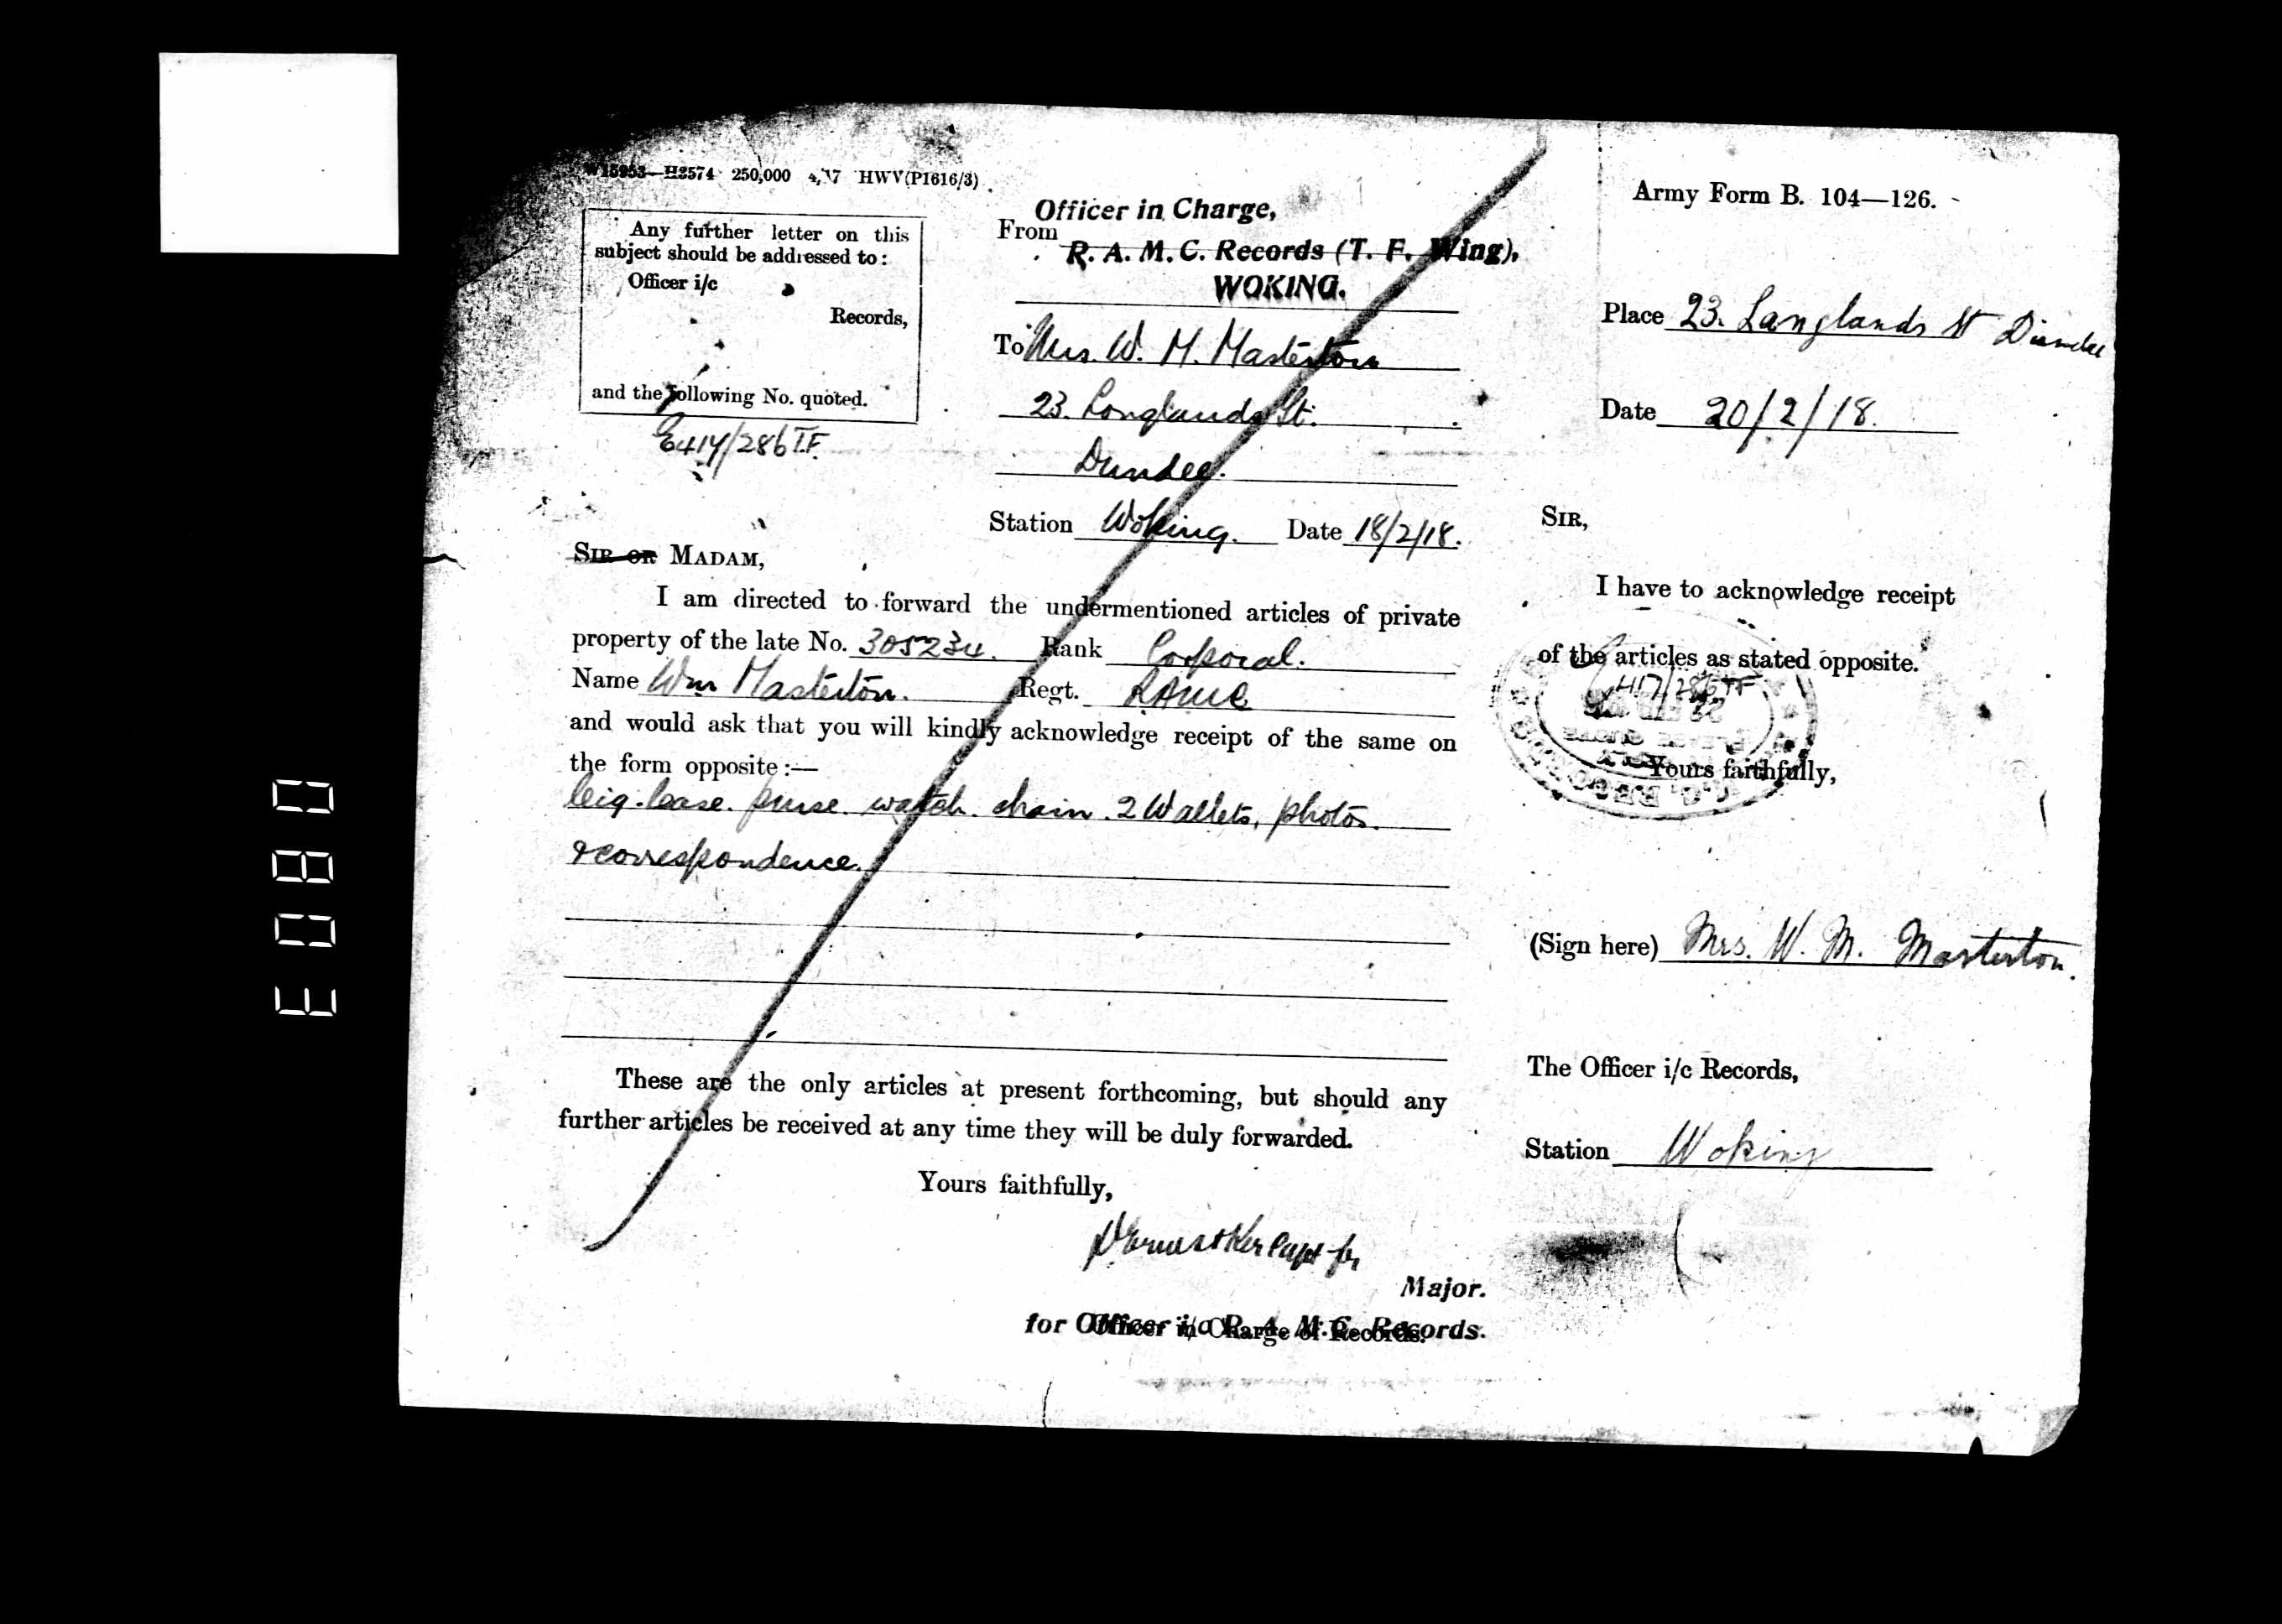 W15953—H3574 250,000 4/17 HWV(P1616/3)
Any further letter on this
subject should be addressed to:
Officer i/c
Records,
and the following No. quoted.
E417/286 T.F.
Officer in Charge,
From
R. A. M. C. Records (T. F. Wing),
WOKING.
To Mrs. W. M. Masterton
23. Langlands St.
Dundee.
Station Woking. Date 18/2/18.
SIR OR MADAM,
I am directed to forward the undermentioned articles of private
property of the late No. 305234. Rank Corporal.
Name Wm Masterton. Regt. RAMC
and would ask that you will kindly acknowledge receipt of the same on
the form opposite:—
Cig. Case. purse. watch. chain. 2 Wallets, photos.
& correspondence.
These are the only articles at present forthcoming, but should any
further articles be received at any time they will be duly forwarded.
Yours faithfully,
Capt for
Major.
for Officer i/c R. A. M. C. Records.
Officer in Charge of Records.
Army Form B. 104—126.
Place 23. Langlands St Dundee
Date 20/2/18.
SIR,
I have to acknowledge receipt
of the articles as stated opposite.
E417/286 TF
Yours faithfully,
(Sign here) Mrs. W. M. Masterton.
The Officer i/c Records,
Station Woking
E080